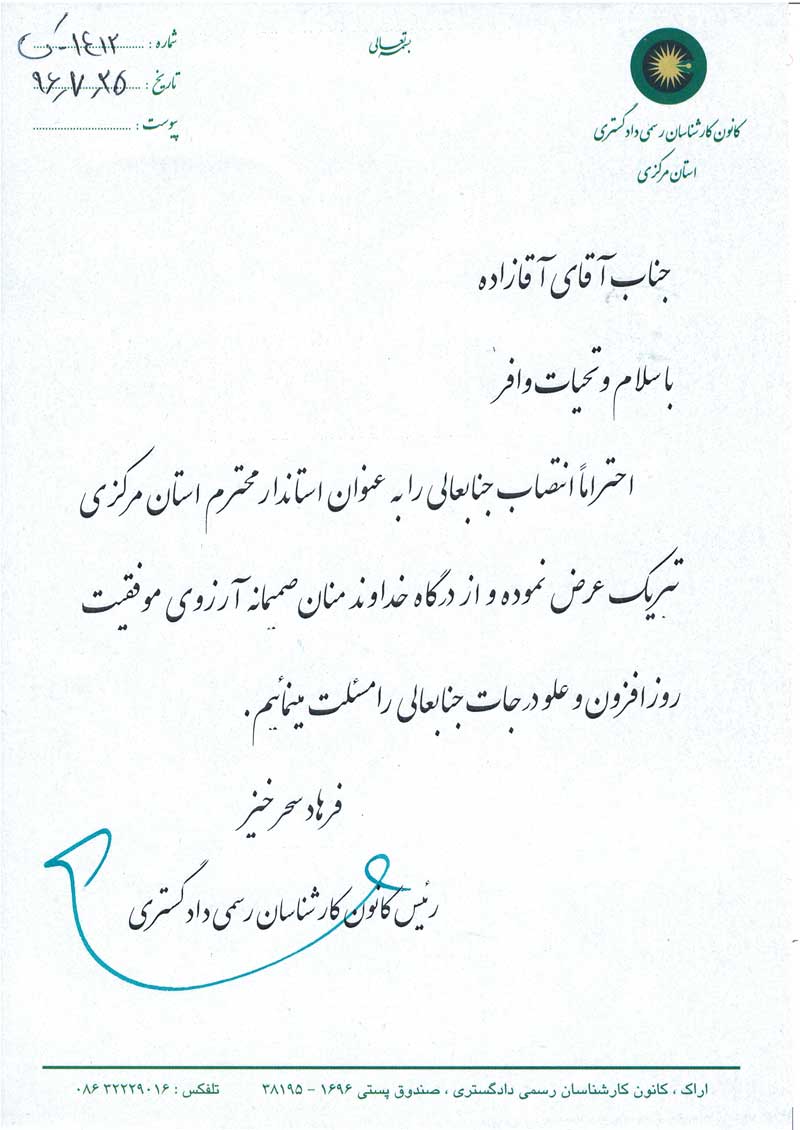 بسمه تعالی
شماره : ۱۴۱۲-ک
تاریخ : ۹۶٫۷٫۲۵
پیوست :
کانون کارشناسان رسمی دادگستری
استان مرکزی
جناب آقای آقازاده
با سلام و تحیات وافر
احتراماً انتصاب جنابعالی را به عنوان استاندار محترم استان مرکزی
تبریک عرض نموده و از درگاه خداوند منان صمیمانه آرزوی موفقیت
روز افزون و علو درجات جنابعالی را مسئلت مینمائیم .
فرهاد سحر خیز
رئیس کانون کارشناسان رسمی دادگستری
اراک ، کانون کارشناسان رسمی دادگستری ، صندوق پستی ۱۶۹۶ - ۳۸۱۹۵ تلفکس : ۳۲۲۲۹۰۱۶ ۰۸۶